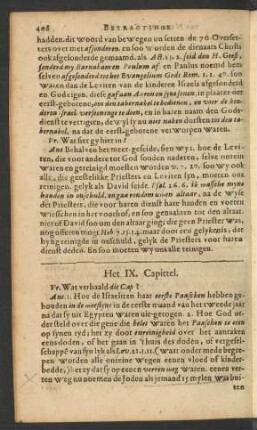 408 BETRACTINGE
hadden. dit woord van bewegen en setten de 70 Overset-
ters over met afsonderen. en soo worden de dienaars Christi
ook afgesonderde genaamd. als Act. 13. 2. seid den H. Geest,
sonderd my Barnabam en Paulum af. en Paulus noemd hem
selven afgesonderd tot het Evangelium Gods Rom. 1. 1. 40. soo
van de Leviten van de kinderen Israels afgesonderd
en als Godeigen. dese gaf aan Aaron en syn sonen in de
eerst-geborene, om den tabernakel te bedienen, en voor de kinde-
ren Israel versoeninge te doen, en in haren naam den Gods-
dienst te verrigten, de wyl sy nu naken dursten tot den ta-
bernakel, na dat de eerst-geborene verworpen waren.
Vr. Wat siet gy hier in?
Ant. Behalven het meer-geseide, sien wy: hoe de Levi-
ten, die voor andere tot God souden naderen, selve onrein
waren en gereinigd moesten worden soo wy ook
alle, die geestelike Priesters en Leviten syn, moeten ons
reinigen. gelyk als David seide Psal. 26. 6. ik wassche myne
handen in onschuld, en gaa rondom uwen altaar, na de wyse
der Priesters, die voor haren dienst hare handen en voeten
wieschen in het voorhof, en soo genaakten tot den altaar.
hoewel David soo om den altaar ging; die geen Priester was,
nog offeren mogt maar door een gelykenis, dat
hy hy gereinigd in onschuld, gelyk de Priesters voor haren
dienst deden. En soo moeten wy ons alle reinigen.
Het IX. Capittel.
Vr. Wat verhaald dit Cap?
Ant. 1. Hoe de Israeliten haar eerste Paaschen hebben ge-
houden in de woestyn in de eerste maand van het tweede jaar
na dat sy uit Egypten waren uit-getogen. 2. Hoe God on-
derscheid over die gene die belet waren het Paaschen te eten
op synen tyd; het zy door onreinigheid over het aanraken
eens dooden, of het gaan in 't huis des dooden, of vergesel-
schappe van syn lyk als Lev. 21. 1. 11. (wat onder mede begre-
pen worden alle onreine eenen vloed of kinder-
bedde,) het zy dat sy op eenen verren weg waren. eenen ver-
ren weg nu noemen de Joden als jemand 15 mylen was bui-
ten